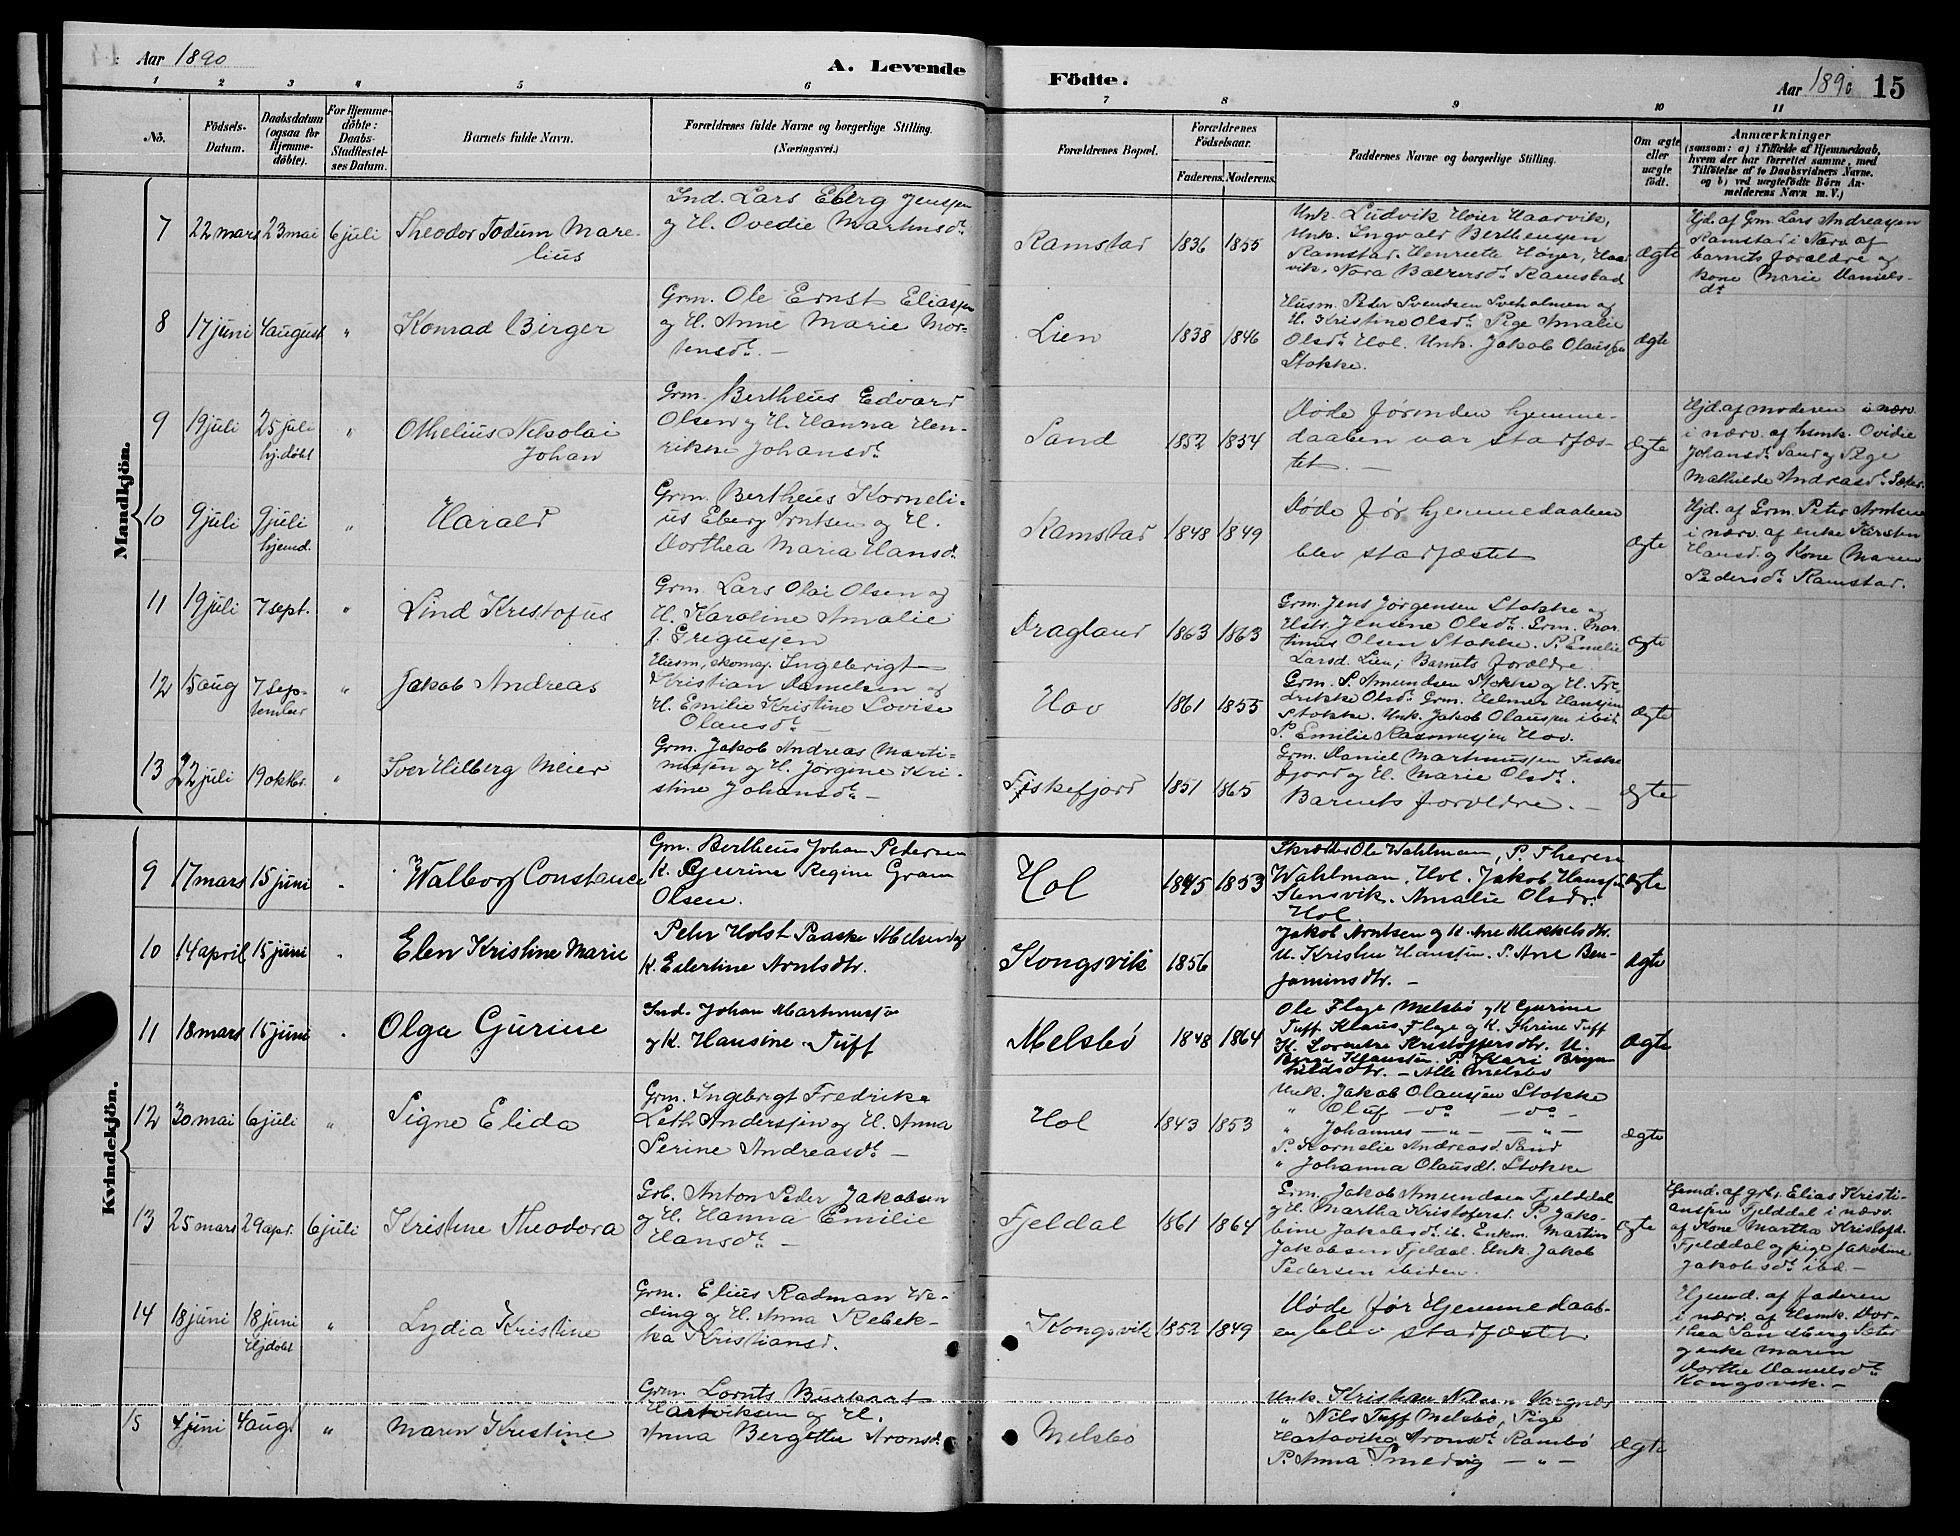 Aar 1890
A. Levende
Födte.
Aar 1890 15
1 2 3 4 5 6 7 8 9 10 11
No.
Födsels-Datum.
Daabsdatum (ogsaa for Hjemme-döbte).
For Hjemme-döbte: Daabs-Stadfæstelses Datum.
Barnets fulde Navn.
Forældrenes fulde Navne og borgerlige Stilling.
(Næringsvei.)
Forældrenes Bopæl.
Forældrenes Födselsaar.
Faderens. Moderens.
Faddernes Navne og borgerlige Stilling.
Om ægte eller uægte födt.
Anmærkninger
(saasom: a) i Tilfælde af Hjemmedaab, hvem der har forrettet samme, med Tilföielse af to Daabsvidners Navne, og b) ved uægtefödte Börn Anmelderens Navn m. V.)
Mandkjön.
7 22 mars 23 mai 6 juli Theodor Todum Mare-
lius
Ind. Lars Eberg Jenssen
og H. Ovedie Martinsdt.
Ramstad 1836 1855
Unk. Ludvik Hoier Haarvik,
Unk. Ingvald Bertheussen
Ramstad. Henriette Høyer, Haar
vik, Nora Balzersdt. Ramstad
Ægte
Hjd. af Grm. Lars Andreassen
Ramstad i Nærv. af
barnets forældre og
kone Marie Daniels-
dt.
8 17 juni 4 august " Konrad Birger
Grm. Ole Ernst Eliassen
og H. Anne Marie Mor-
tensdt. —
Lien 1838 1846
Husm. Peder Svendsen Sveholmen og
H. Kristine Olsdt. Pige Amalie
Olsdt. Hol. Unk. Jakob Olaussen
Stokke.
ægte
9 19 juli 25 juli
hj. døbt " Othelius Nikolai
Johan
Grm. Bertheus Edvard
Olsen og H. Hanna Hen-
rikke Johansdt.
Sand 1852 1854
Døde førinden hjemme-
daaben var stadfæs-
tet. —
Ægte
Hjd. af moderen i nærv.
i nærv. af hsmk. Ovidie
Johansdt. Sand og Pige
Mathilde Andreasdt.
10 9 juli 9 juli
hjemd. " Harald
Grm. Bertheus Korneli-
us Eberg Arntsen og H.
Dorthea Maria Hansd.
Ramstad 1848 1849
Døde før hjemmedaaben
blev stadfæstet
Ægte
Hjd. af Grm. Peter Arntsen
i nærv. af enke Kirsten
Hansd. og Kone Maren
Pedersdt. Ramstad.
11 19 juli 7 sept. " Lind Kristofus
Grm. Lars Olai Olsen og
H. Karoline Amalie
f. Gregussen
Dragland 1863 1863
Grm. Jens Jørgensen Stokke og
Hstr. Jensine Olsdt. Grm. Mar-
tinus Olsen Stokke. P. Emelie
Larsd. Lien; Barnets forældre
Ægte
12 15 aug 7 sep-
tember " Jakob Andreas
Husm. skomag. Ingebrigt
Kristian Danielsen og
H. Emilie Kristine Lovise
Olausdt.
Hov 1861 1855
Grm. P. Amundsen Stokke og H. Fre-
drikke Olsdt. Grm. Helmer Hanssen
Stokke. Unk. Jakob Olaussen ibid.
P. Emilie Rasmussen Hov.
Ægte
13 22 juli 19 oktbr. " Sver Hilberg Meier
Grm. Jakob Andreas Marti-
nussen og H. Jørgine Kri-
stine Johansdt. —
Fiskefjord 1851 1865
Grm. Daniel Martinussen Fiske
fjord og H. Marie Olsdt.
Barnets forældre. —
Ægte
Kvindekjön.
9 17 mars 15 juni " Walborg Constance
Grm. Bertheus Johan Petersen
K. Gjurine Regine Gram
Olsen.
Hol 1845 1853
Skrædder Ole Wahlman, P. Therese
Wahlman, Hol. Jakob Hanssen
Stensvik. Amalie Olsdtr.
Hol
Ægte
10 14 april 15 juni " Elen Kristine Marie
Peter Holst Paaske Nielsen og
K. Edertine Arntsdtr.
Kongsvik 1856
Jakob Arntsen og K. Ane Mikkelsdtr.
U. Kristen Hanssen. P. Ane Ben-
jaminsdtr. —
Ægte
11 18 mars 15 juni " Olga Gjurine
Ind. Johan Martinussen
og K. Hansine Tuff
Melsbö 1848 1864
Ole Flage Melsbö og K Gjurine
Tuff Klaus Flage og K. Thrine Tuff
K. Lornetze Kristoffersdtr. U.
Berge Klaussen. P. Kari Bryn-
hildsdtr. — Alle Melsbö
Ægte
12 30 mai 6 juli " Signe Elida
Grm. Ingebrigt Fredrik
Leth Anderssen og H. Anna
Perine Andreasdt. —
Hol 1843 1853
Unk. Jakob Olaussen Stokke
" Oluf — do — do —
" Johannes — " — " —
P. Kornelie Andreasd. Sand
" Johanna Olausdt. Stokke
ægte
13 25 mars 29 apr. 6 juli Kristine Theodora
Grb. Anton Peder Jakobsen
og H. Hanna Emilie
Hansdt. —
Fjeldal 1861 1864
Grm. Jakob Amundsen Fjelddal
og H. Martha Kristoferst. P. Jako-
bine Jakobsdt. ib. Enkm. Martin
Jakobsen Fjeldal. Unk. Jakob
Pedersen ibidem.
Ægte
Hjemd. af grbr. Elias Kristi-
anssen Fjelddal i nærv.
af Kone Martha Kristofd.
Fjelddal og pige Jakobine
Jakobsdt. ibd. —
14 18 juni 18 juni
Hjdøbt " Lydia Kristine
Grm. Elius Radman We-
ding og H. Anna Rebek-
ka Kristiansd.
Kongsvik 1852 1849
Døde før Hjemmedaab-
en blev stadfæstet
Hjemd. af faderen
i nærv. af Hsmk. Dor-
thea Sandberg Sæter
og enke Maren
Dorthe Danielsdt.
Kongsvik. —
15 4 juni 4 aug. " Maren Kristine
Grm. Lornts Burkart
Hartviksen og H.
Anna Bergette Aronsd.
Melsbö
Unk. Kristian Nilsen
" Nils Tuff Melsbö, Pige
Hartavika Aronsdt. Rambö
P. Anna Smedvig — " —
Ægte